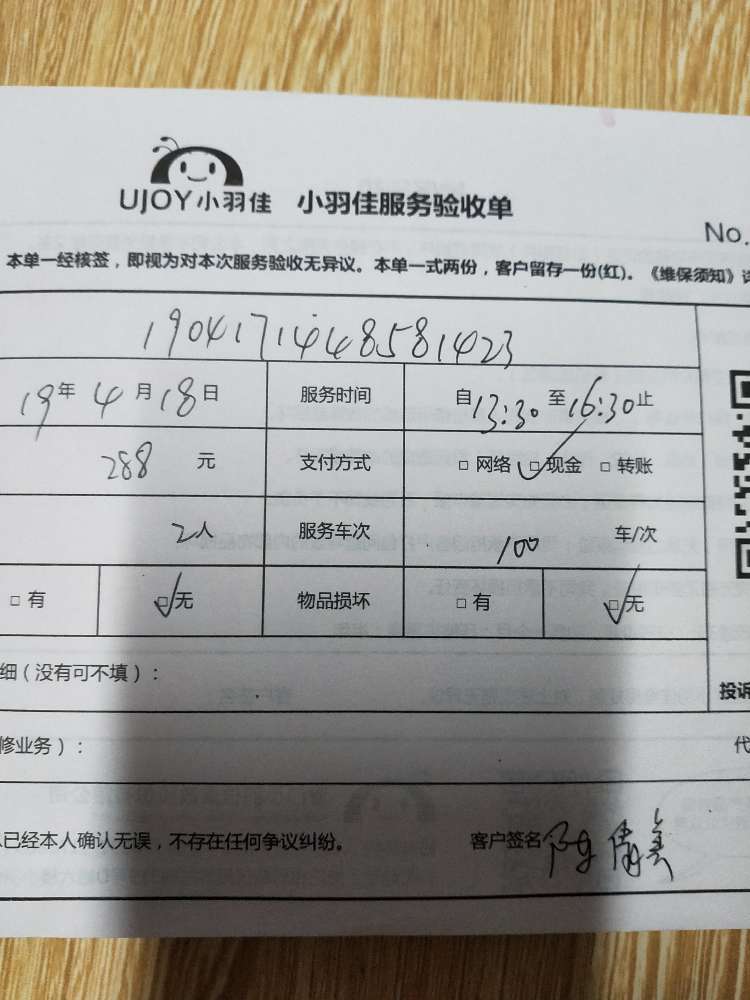 UJOY小羽佳 小羽佳服务验收单
No.
本单一经核签，即视为对本次服务验收无异议。本单一式两份，客户留存一份(红)。《维保须知》
1904171448581423
19年4月18日 服务时间 自13:30至16:30止
288 元 支付方式 □ 网络 □ 现金 □ 转账
2人 服务车次 100 车/次
□ 有 □ 无 物品损坏 □ 有 □ 无
细（没有可不填）： 投诉
修业务）： 代
已经本人确认无误，不存在任何争议纠纷。 客户签名